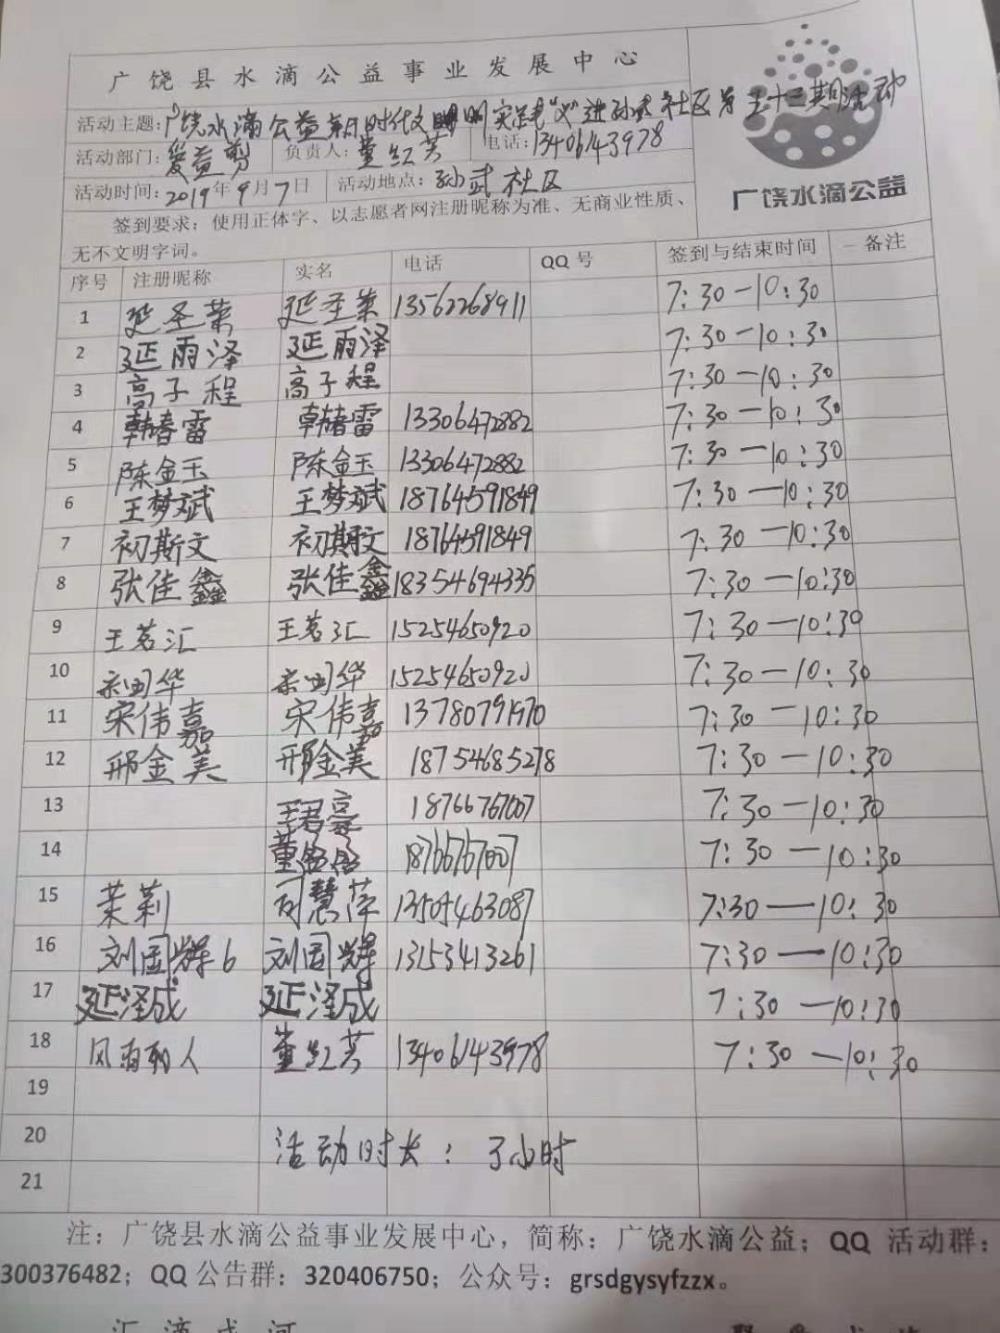 广饶县水滴公益事业发展中心
活动主题:广饶水滴公益新时代文明实践"义"进孙武社区第三十三期活动
活动部门:爱益剪 负责人:董红芳 电话:13406143978
活动时间:2019年9月7日 活动地点:孙武社区
广饶水滴公益
签到要求:使用正体字、以志愿者网注册昵称为准、无商业性质、
无不文明字词。
序号 注册昵称 实名 电话 QQ号 签到与结束时间 备注
1 延圣荣 延圣荣 13562268911 7:30-10:30
2 延雨泽 延雨泽 7:30-10:30
3 高子程 高子程 7:30-10:30
4 韩春雷 韩春雷 13306472882 7:30-10:30
5 陈金玉 陈金玉 13306472882 7:30-10:30
6 王梦斌 王梦斌 18764591849 7:30-10:30
7 初斯文 初斯文 18764591849 7:30-10:30
8 张佳鑫 张佳鑫 18354694335 7:30-10:30
9 王茗汇 王茗汇 15254650920 7:30-10:30
10 15254650920 7:30-10:30
11 宋伟嘉 宋伟嘉 13780791970 7:30-10:30
12 邢金美 邢金美 18754685278 7:30-10:30
13 王君豪 18766767007 7:30-10:30
14 18766767007 7:30-10:30
15 茉莉 司慧萍 13505463087 7:30-10:30
16 刘国辉6 刘国辉 13153413261 7:30-10:30
17 延泽成 延泽成 7:30-10:30
18 风雨韧人 董红芳 13406143978 7:30-10:30
19
20 活动时长:3小时
21
注:广饶县水滴公益事业发展中心,简称:广饶水滴公益;QQ 活动群:
300376482;QQ公告群:320406750;公众号:grsdgysyfzzx。
汇滴成河